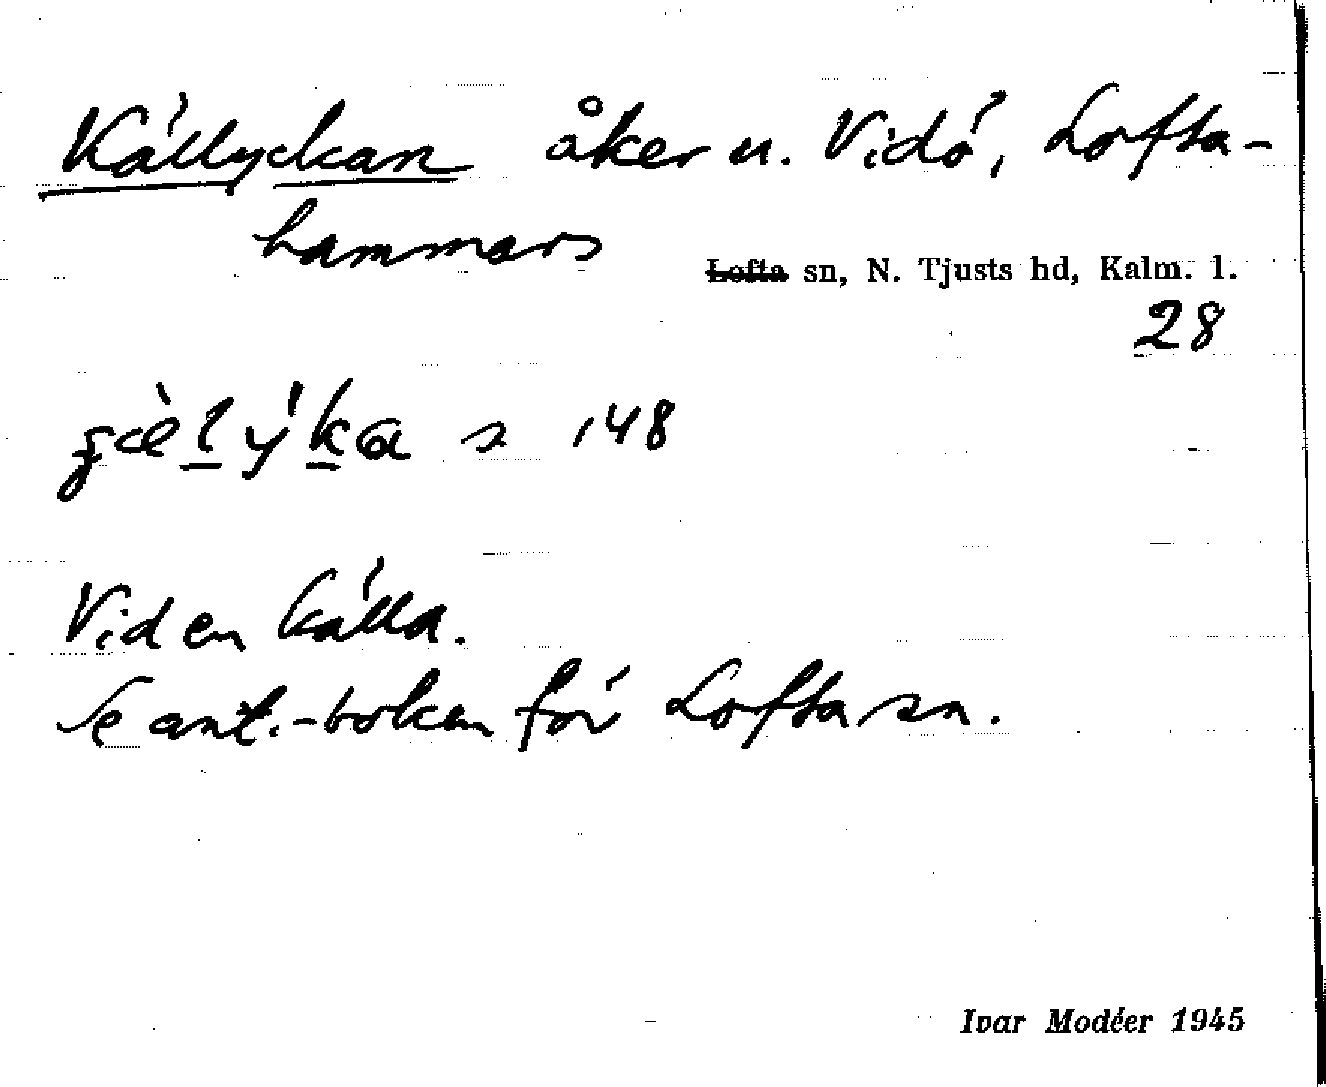 Källyckan åker u. Vidö, Lofta-
hammars
Lofta sn, N. Tjusts hd, Kalm. l.
28
s 148
Vid en källa.
Se ant.-boken för Lofta sn.
Ivar Modéer 1945